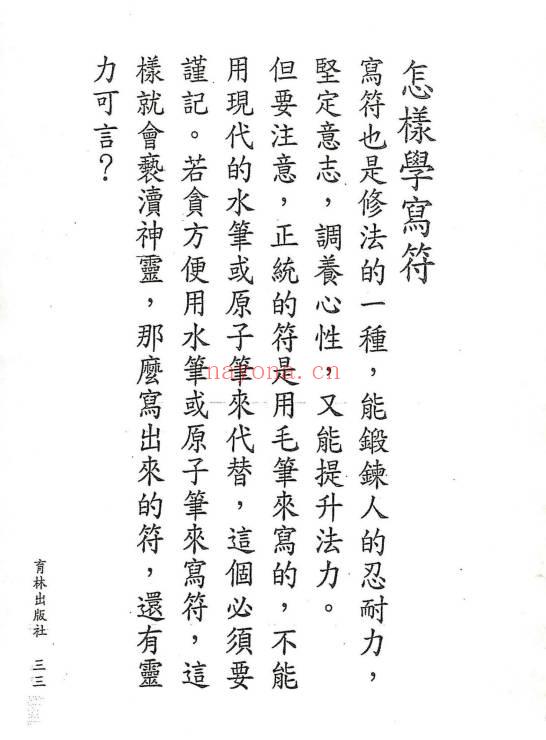 怎樣學寫符
寫符也是修法的一種，能鍛鍊人的忍耐力，
堅定意志，調養心性，又能提升法力。
但要注意，正統的符是用毛筆來寫的，不能
用現代的水筆或原子筆來代替，這個必須要
謹記。若貪方便用水筆或原子筆來寫符，這
樣就會褻瀆神靈，那麼寫出來的符，還有靈
力可言？
育林出版社 三三
nayona.cn